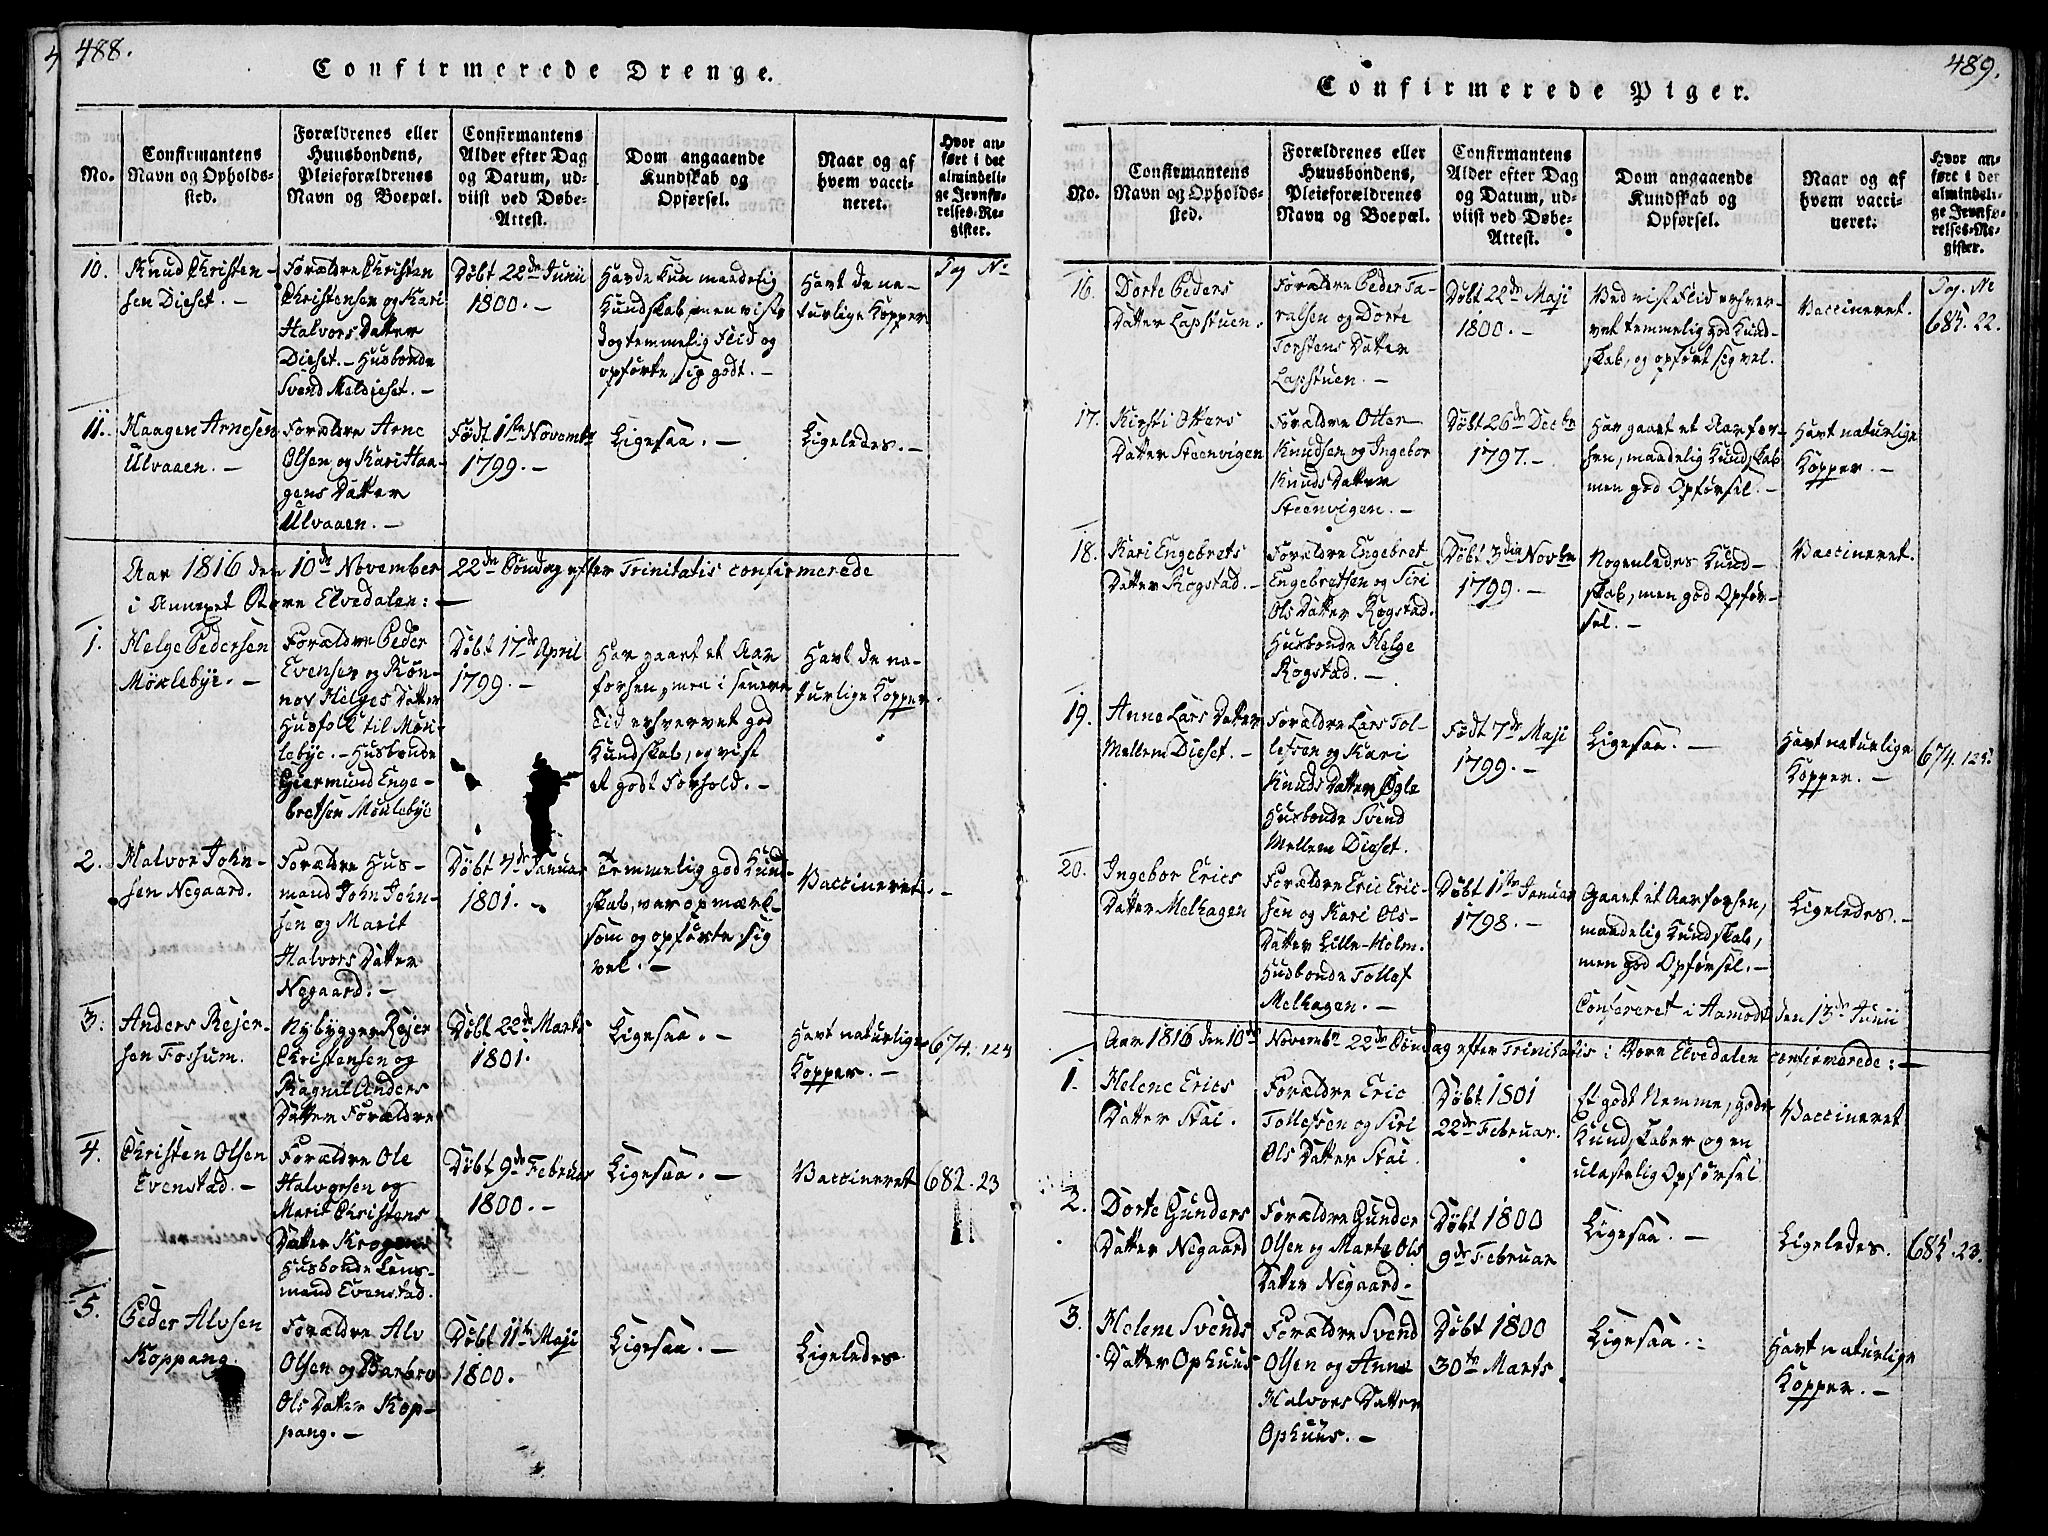 488.
Confirmerede Drenge.
No.
Confirmantens
Navn og Opholds-
sted.
Forældrenes eller
Huusbondens,
Pleieforældrenes
Navn og Boepæl.
Confirmantens
Alder efter Dag
og Datum, ud-
viist ved Døbe-
Attest.
Dom angaaende
Kundskab og
Opførsel.
Naar og af
hvem vacci-
neret.
Hvor an-
ført i det
almindeli-
ge Jevnfø-
relses-Re-
gister.
Pag No
10.
Knud Christen-
sen Dieset. -
Forældre Christen
Christensen og Kari
Halvors Datter
Dieset. - Husbonde
Svend Neldieset. -
Døbt 22de Junii
1800. -
Havde kun maadelig
Kundskab, men viste
dog temmelig Flid og
opførte sig godt. -
Havt de na-
turlige Kopper
11.
Haagen Arnesen
Ulvaaen. -
Forældre Arne
Olsen og Kari Haa-
gens Datter
Ulvaaen. -
Født 1ste Novembr
1799. -
Ligesaa. -
Ligeledes. -
Aar 1816 den 10de November 22de Søndag efter Trinitatis confirmerede
i Annexet Store Elvedalen: -
1.
Helge Pedersen
Møklebye. -
Forældre Peder
Evensen og Røn-
nov Helges Datter
Husfolk til Møk-
lebye. - Husbonde
Giermund Enge-
bretsen Møklebye
Døbt 17de April
1799. -
Har gaaet et Aar
forsen, men i senere
Tid erhvervet god
Kundskab, og vist
et godt Forhold. -
Havt de na-
turlige Kopper.
2.
Halvor John-
sen Negaard.
Forældre Hus-
mand John John-
sen og Marit
Halvors Datter
Negaard. -
Døbt 4de Januar
1801. -
Temmelig god Kund-
skab, var opmærk-
som og opførte sig
vel. -
Vaccineret. -
3.
Anders Rejer-
sen Fossum.
Nybygger Rejer
Christensen og
Ragnil Anders
Datter Forældre
Døbt 22de Marts
1801.
Ligesaa. -
Havt naturlige
Kopper. -
674. 124
4.
Christen Olsen
Evenstad. -
Forældre Ole
Halvorsen og
Marit Christens
Datter Krogen
Husbonde Lens-
mand Evenstad.
Døbt 9de Februar
1800. -
Ligesaa. -
Vaccineret
682. 23
5.
Peder Alvsen
Koppang
Forældre Alv
Olsen og Barbro
Ols Datter Kop-
pang. -
Døbt 11te Maji
1800.
Ligesaa. -
Ligeledes
489.
Confirmerede Piger.
No.
Confirmantens
Navn og Opholds-
sted.
Forældrenes eller
Huusbondens,
Pleieforældrenes
Navn og Boepæl.
Confirmantens
Alder efter Dag
og Datum, ud-
viist ved Døbe-
Attest.
Dom angaaende
Kundskab og
Opførsel.
Naar og af
hvem vacci-
neret.
Hvor an-
ført i det
almindeli-
ge Jevnfø-
relses-Re-
gister.
Pag. No
16.
Dorte Peders
Datter Lapstuen.
Forældre Peder Ta-
ralsen og Dorte
Torstens Datter
Lapstuen. -
Døbt 22de Maji
1800. -
Ved vist Flid erhver-
vet temmelig god Kund-
skab, og opført sig vel.
Vaccineret.
685. 22.
17.
Kirsti Otters
Datter Steenvigen
Forældre Otter
Knudsen og Ingebor
Knuds Datter
Steenvigen. -
Døbt 26de Decbr
1797. -
Har gaaet et Aar for-
sen, maadelig Kundskab
men god Opførsel. -
Havt naturlige
Kopper. -
18.
Kari Engebrets
Datter Rogstad. -
Forældre Engebret
Engebretsen og Siri
Ols Datter Rogstad.
Husbonde Helge
Rogstad. -
Døbt 3die Novbr
1799. -
Nogenledes Kund-
skab, men god Opfør-
sel. -
Vaccineret.
19.
Anne Lars Datter
Mellem Dieset. -
Forældre Lars Tol-
lefsen og Kari
Knuds Datter Øgle
Husbonde Svend
Mellem Dieset.
Født 7de Maji
1799. -
Ligesaa. -
Havt naturlige
Kopper. -
674. 125
20.
Ingebor Erics
Datter Melhagen
Forældre Eric Eric-
sen og Kari Ols-
Datter Lille-Holm.
Husbonde Tollef
Melhagen. -
Døbt 1ste Januar
1798. -
Gaaet et Aar forsen,
maadelig Kundskab,
men god Opførsel. -
Ligeledes. -
Confereret i Aamodt den 13de Junii
Aar 1816 den 10de Novembr 22de Søndag efter Trinitatis i Store Elvedalen confirmerede: -
1.
Helene Erics
Datter Stai.
Forældre Eric
Tollefsen og Siri
Ols Datter Stai.
Døbt 1801
22de Februar.
Et godt Nemme, gode
Kundskaber og en
ulastelig Opførsel
Vaccineret
2.
Dorte Gunders
Datter Negaard
Forældre Gunder
Olsen og Marte Ols
Datter Negaard. -
Døbt 1800
9de Februar
Ligesaa. -
Ligeledes.
685. 23.
3.
Helene Svends
Datter Ophuus
Forældre Svend
Olsen og Anne
Halvors Datter
Ophuus. -
Døbt 1800
30te Marts
Ligesaa. -
Havt naturlige
Kopper. -